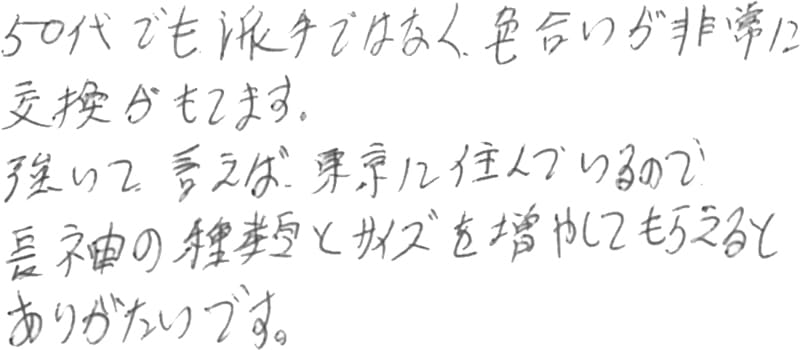 50代でも派手ではなく、色合いが非常に
交換がもてます。
強いて言えば、東京に住んでいるので
長神の種類とサイズを増やしてもらえると
ありがたいです。